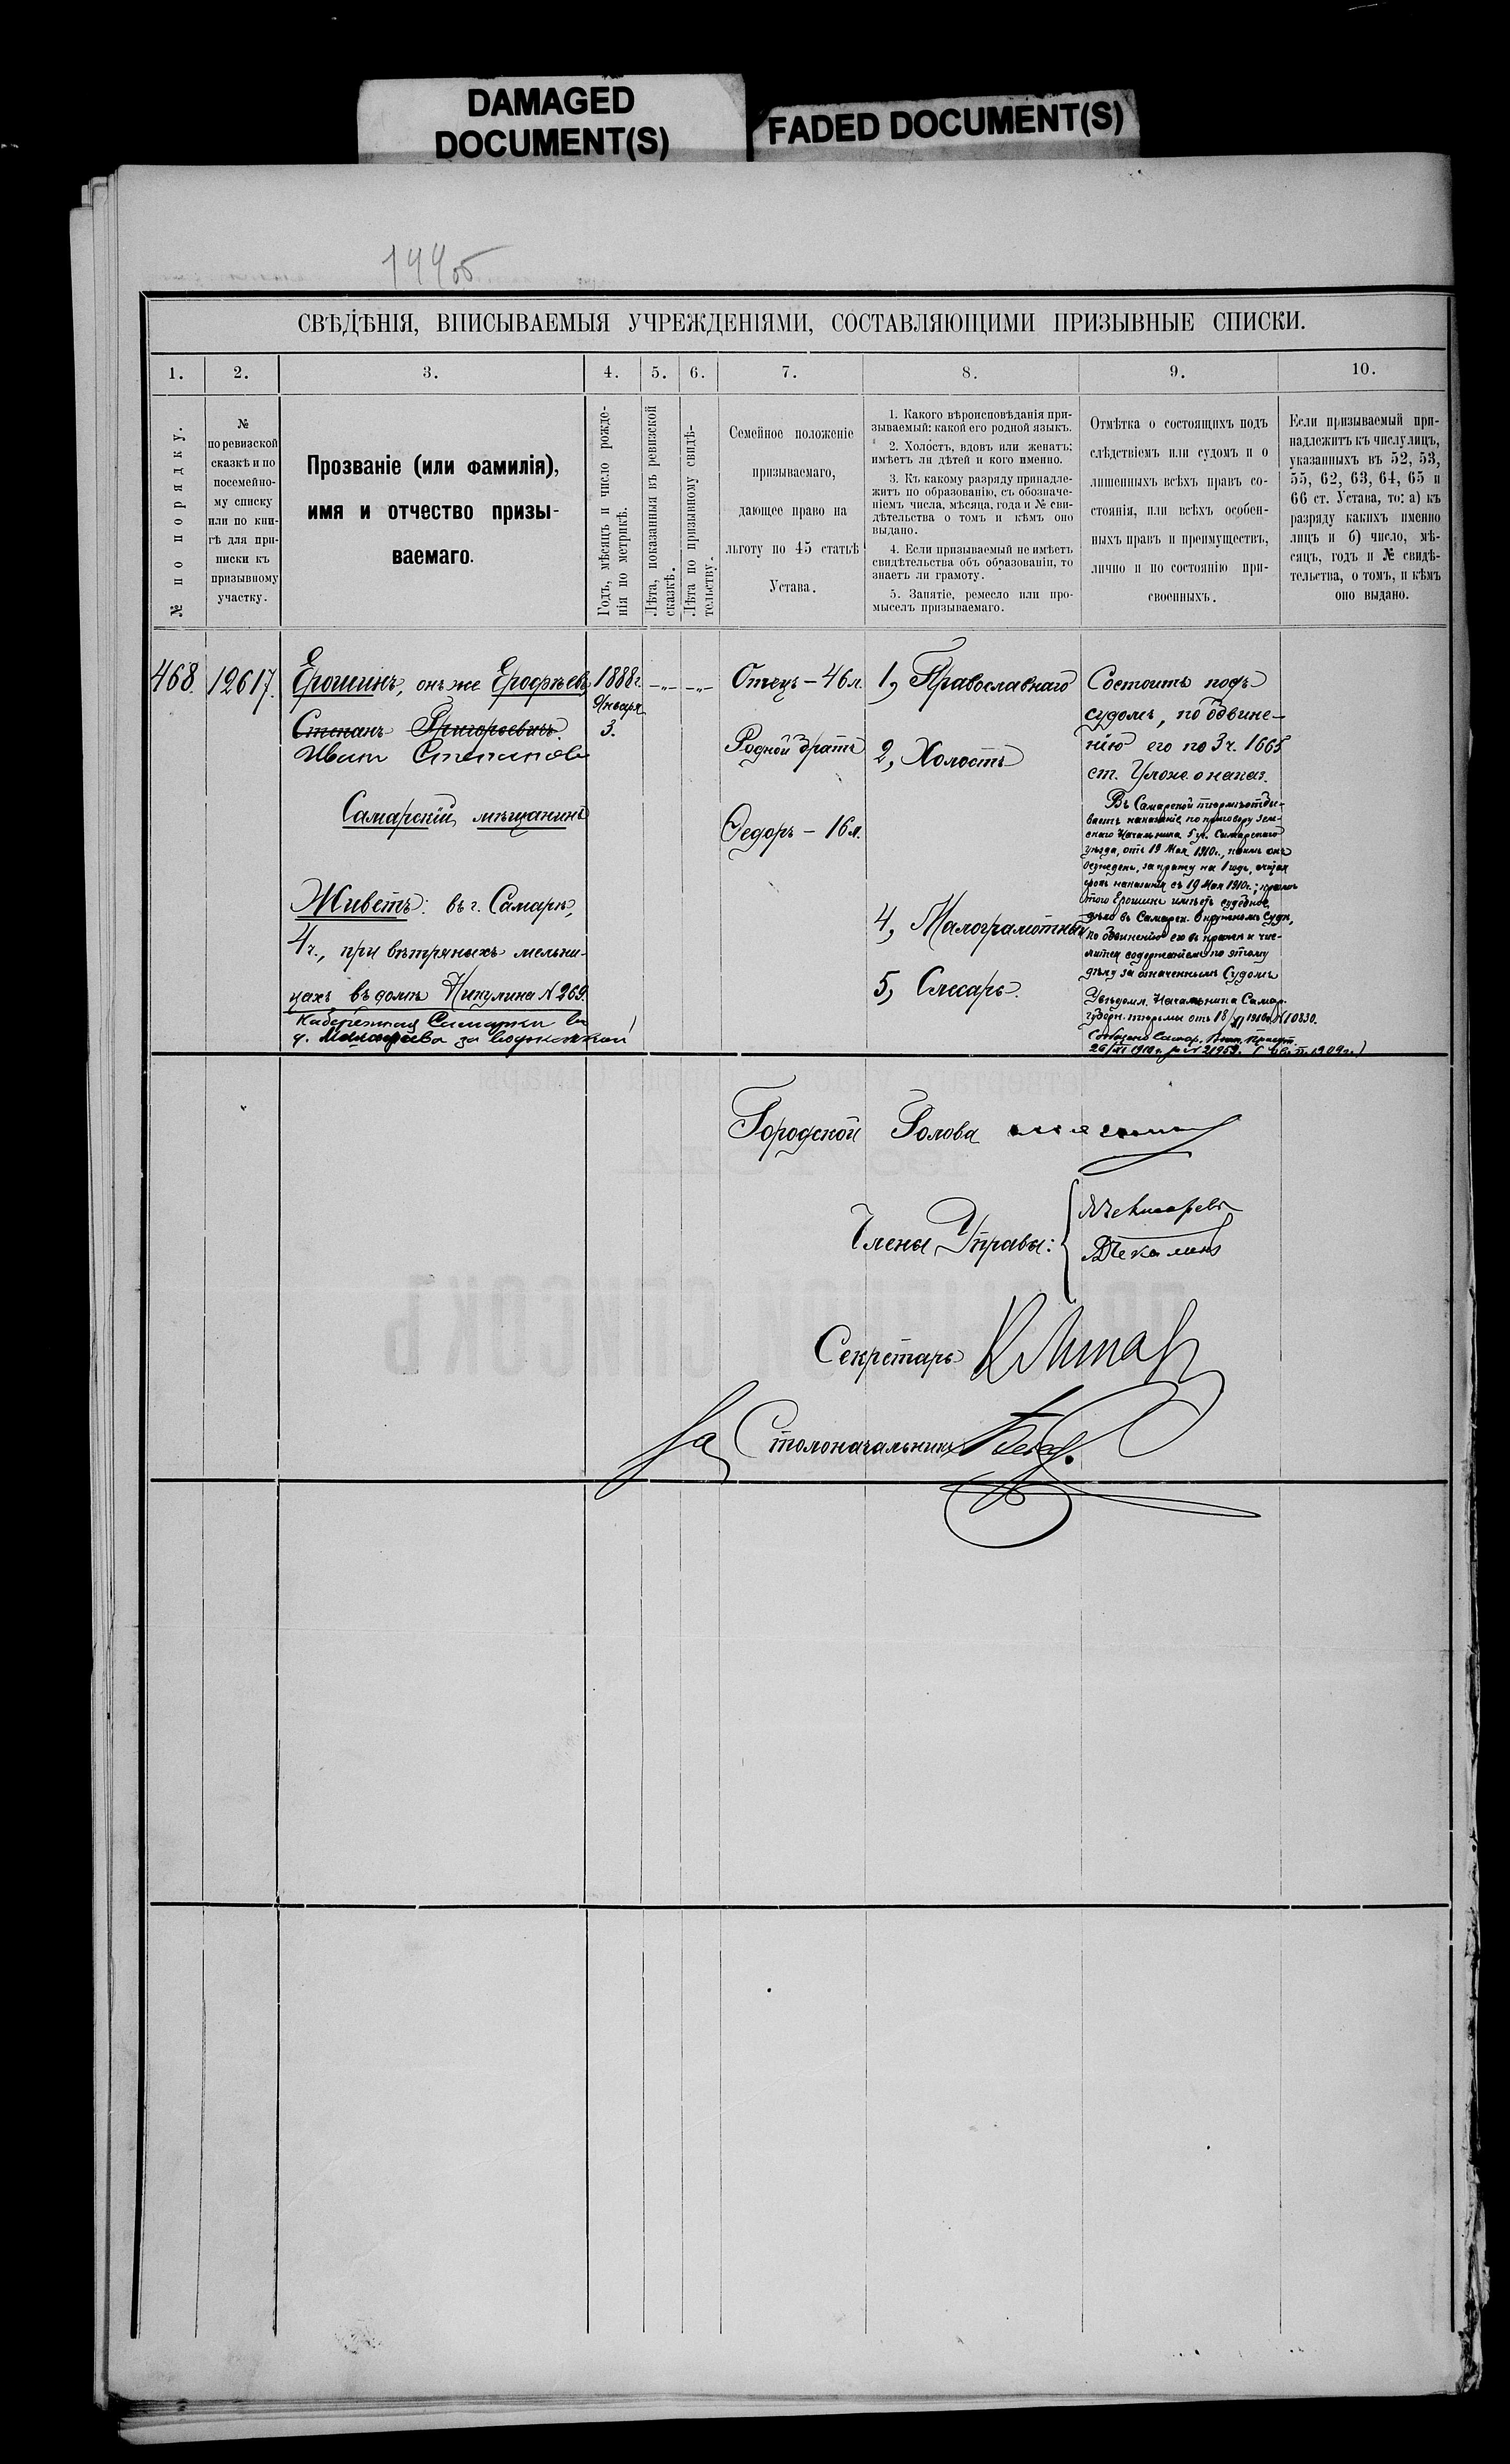 DAMAGED
DOCUMENT(S)
FADED DOCUMENT(S)
199об
СВѢДѢНІЯ, ВПИСЫВАЕМЫЯ УЧРЕЖДЕНІЯМИ, СОСТАВЛЯЮЩИМИ ПРИЗЫВНЫЕ СПИСКИ.
1. 2. 3. 4. 5. 6. 7. 8. 9. 10.
№ по порядку.
№
по ревизской
сказкѣ и по
посемейно-
му списку
или по кни-
гѣ для при-
писки къ
призывному
участку.
Прозваніе (или фамилія),
имя и отчество призы-
ваемаго.
Годъ, мѣсяцъ и число рожде-
нія по метрикѣ.
Лѣта, показанныя въ ревизской
сказкѣ.
Лѣта по призывному свидѣ-
тельству.
Семейное положеніе
призываемаго,
дающее право на
льготу по 45 статьѣ
Устава.
1. Какого вѣроисповѣданія при-
зываемый: какой его родной языкъ.
2. Холостъ, вдовъ или женатъ:
имѣетъ ли дѣтей и кого именно.
3. Къ какому разряду принадле-
житъ по образованію, съ обозначе-
ніемъ числа, мѣсяца, года и № сви-
дѣтельства о томъ и кѣмъ оно
выдано.
4. Если призываемый не имѣетъ
свидѣтельства объ образованіи, то
знаетъ ли грамоту.
5. Занятіе, ремесло или про-
мыселъ призываемаго.
Отмѣтка о состоящихъ подъ
слѣдствіемъ или судомъ и о
лишенныхъ всѣхъ правъ со-
стоянія, или всѣхъ особен-
ныхъ правъ и преимуществъ,
лично и по состоянію при-
своенныхъ.
Если призываемый при-
надлежитъ къ числу лицъ,
указанныхъ въ 52, 53,
55, 62, 63, 64, 65 и
66 ст. Устава, то: а) къ
разряду какихъ именно
лицъ и б) число, мѣ-
сяцъ, годъ и № свидѣ-
тельства, о томъ, и кѣмъ
оно выдано.
468. 12617.
Ерошинъ, онъ же Ерофѣевъ
Степанъ Григорьевичъ.
Иван Степанов
Самарскій мѣщанинъ
Живетъ: въ г. Самарѣ,
4 ч., при вѣтряныхъ мельни-
цахъ въ домѣ Никулина № 269.
Набережная Самарки
д. за водокачкой
1888 г.
Января
3.
-„- -„-
Отецъ – 46 л.
Родной братъ
Ѳедоръ – 16 л.
1, Православнаго
2, Холостъ
4, Малограмотный
5, Слесарь.
Состоитъ подъ
судомъ, по обвине-
нію его по 3 ч. 1665
ст. Улож. о наказ.
Въ Самарской тюрьмѣ отбы-
ваетъ наказаніе по приговору Зем-
скаго Начальника 5 уч. Самарскаго
уѣзда, отъ 19 Мая 1910 г., коимъ онъ
осужденъ за кражу на 1 годъ, считая
срокъ наказанія съ 19 Мая 1910 г.; кромѣ
того Ерошинъ имѣетъ судебное
дѣло въ Самарск. Окружномъ Судѣ,
по обвиненію его въ кражѣ и чис-
лится содержаніемъ по этому
дѣлу за означеннымъ Судомъ
Увѣдомл. Начальника Самар.
губерн. тюрьмы отъ 18/XI 1910 г. № 10830.
Сообщено Самар. Воин. Присут.
26/XI 1910 г. за № 21959.
Городской Голова
Члены Управы:
Секретарь
За Столоначальника